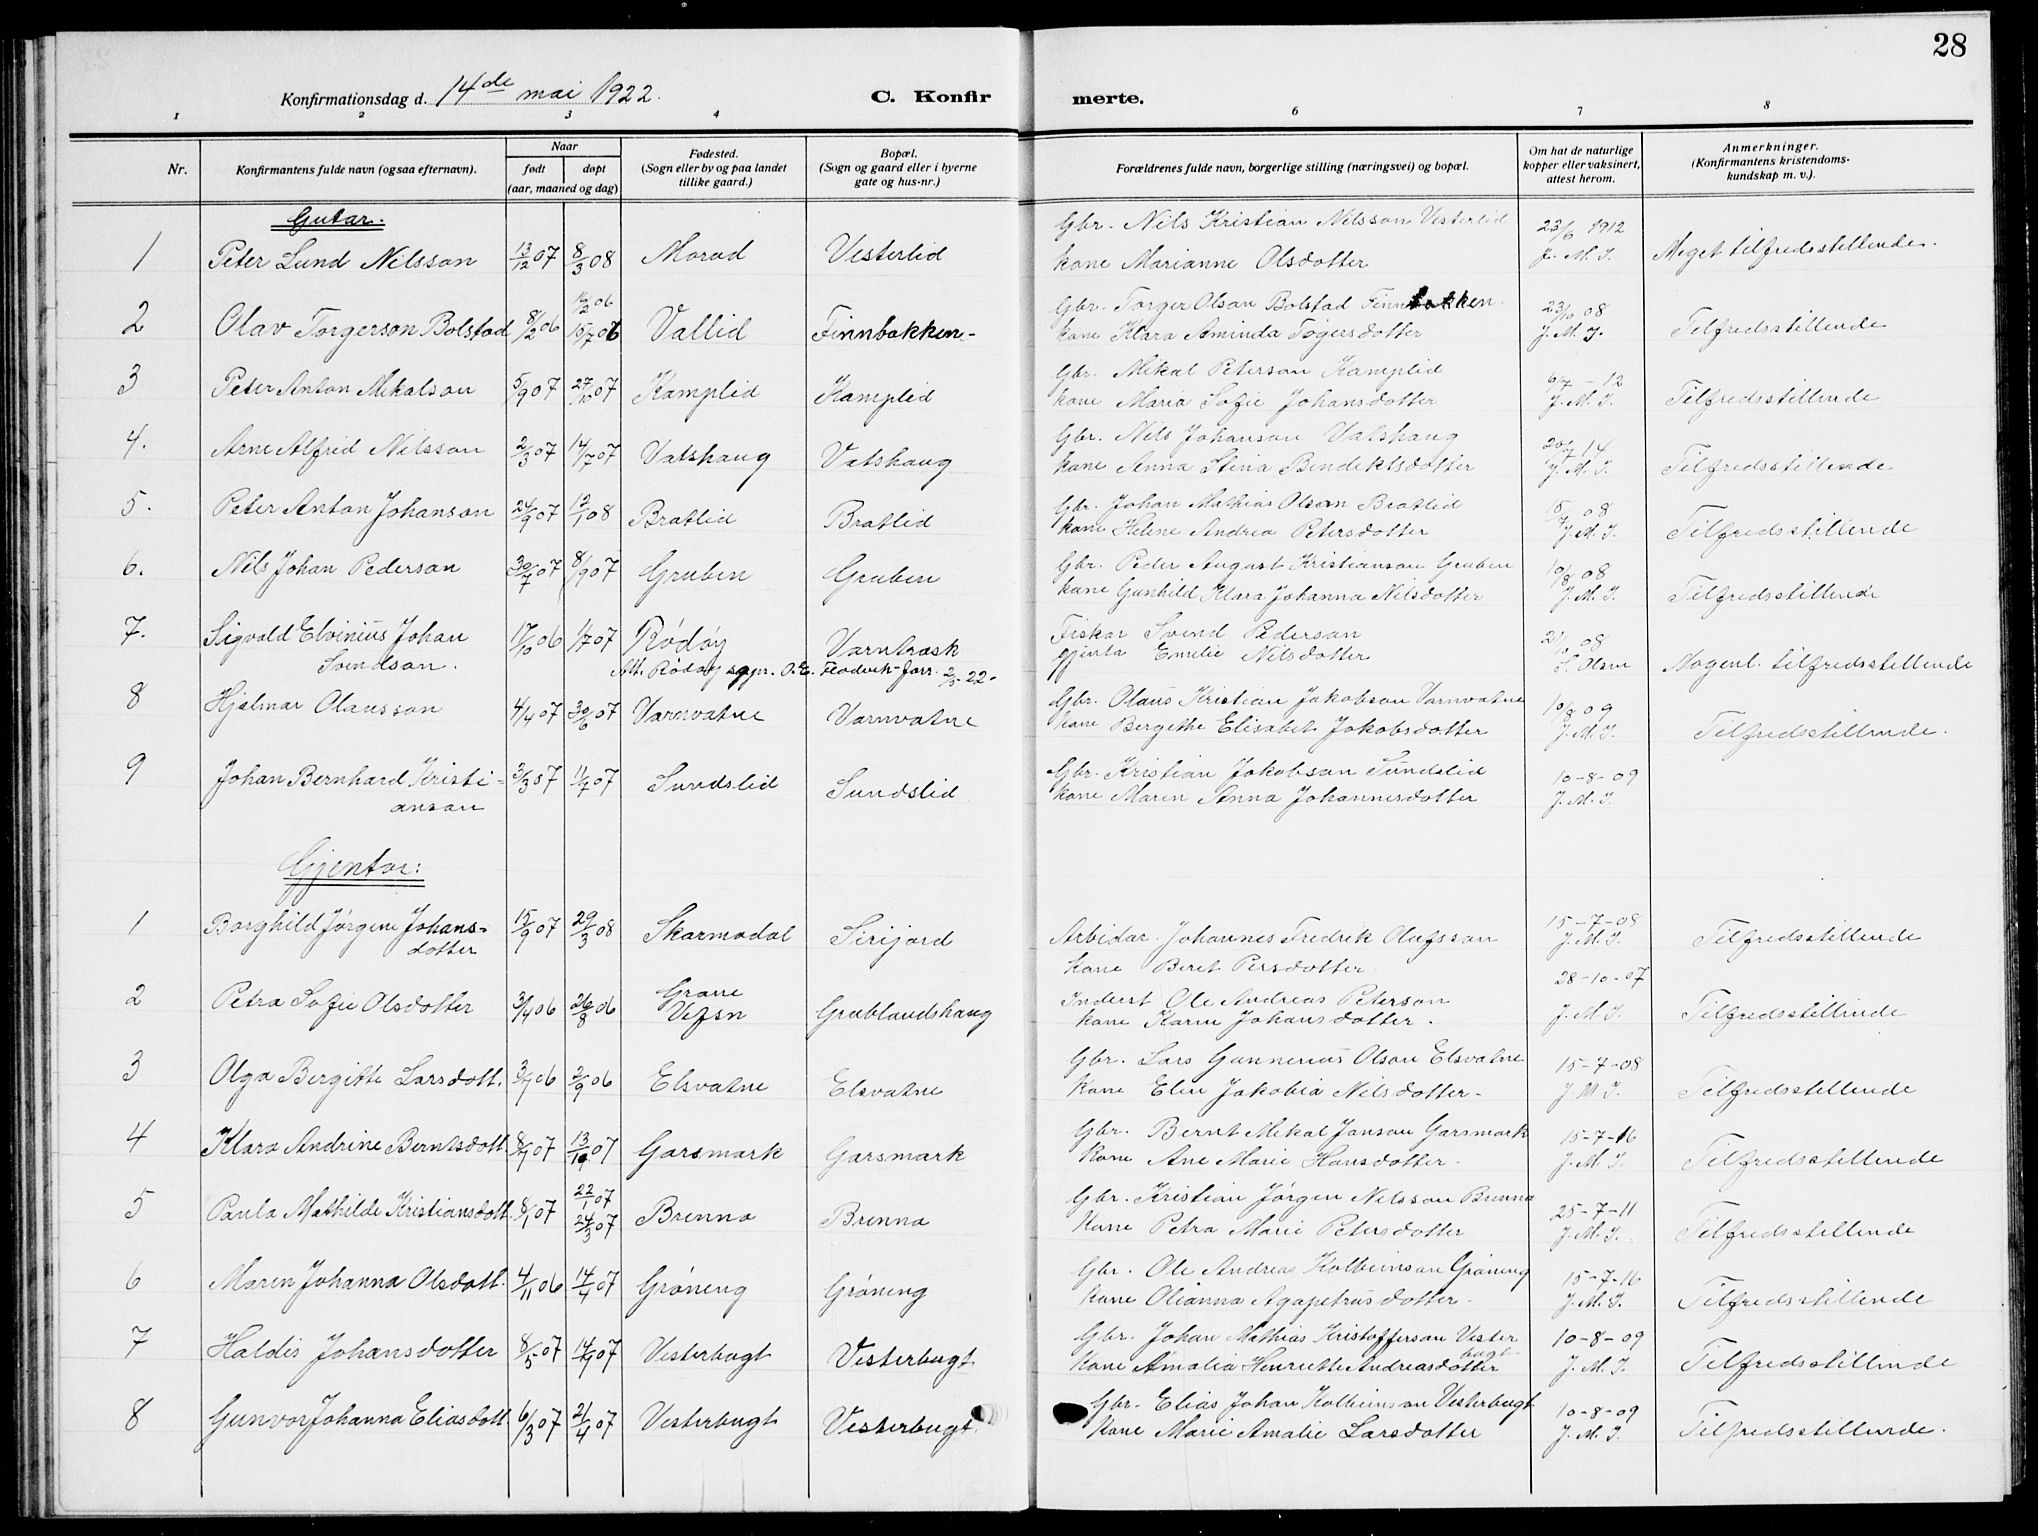 28
Konfirmationsdag d. 14de mai 1922.
C. Konfir
merte.
1 2 3 4 6 7 8
Nr.
Konfirmantens fulde navn (ogsaa efternavn).
Naar
født
døpt
(aar, maaned og dag)
Fødested.
(Sogn eller by og paa landet
tillike gaard.)
Bopæl.
(Sogn og gaard eller i byerne
gate og hus-nr.)
Forældrenes fulde navn, borgerlige stilling (næringsvei) og bopæl.
Om hat de naturlige
kopper eller vaksinert,
attest herom.
Anmerkninger.
(Konfirmantens kristendoms-
kundskap m. v.).
Gutar.
Gbr. Nils Kristian Nilsson Vesterlid 23/6 1912
1 Peter Lund Nilsson 13/12 07 8/3 08 Vesterlid kone Marianne Olsdotter J. M. J. Meget tilfredsstillende.
Gbr. Torger Olson Bolstad Finnbakken. 23/10 08
2 Olav Torgerson Bolstad 8/2 06 15/7 06 Vallid Finnbakken kone Klara Aminda Togersdotter J. M. J. Tilfredsstillende
Gbr. Mikal Peterson Kamplid
3 Peter Anton Mikalson 5/9 07 27/10 07 Kamplid Kamplid kone Maria Sofie Johansdotter J. M. J. Tilfredsstillende
Gbr. Nils Johanson Vatshaug
4. Arne Alfred Nilsson 2/3 07 14/7 07 Vatshaug Vatshaug kone Anna Stina Bendiktsdotter J. M. J. Tilfredsstillende
Gbr. Johan Mathias Olson Bratlid
5. Peter Anton Johanson 24/9 07 12/1 08 Bratlid Bratlid kone Helene Andrea Petersdotter J. M. J. Tilfredsstillende
Gbr. Peder August Kristianson Gruben 10/8 08
6. Nils Johan Pederson 30/7 07 8/9 07 Gruben Gruben kone Gunhild Klara Johanna Nilsdotter J. M. J. Tilfredsstillende
7. Sigvald Elvinius Johan 17/10 06 1/7 07 Rödöy Varntræsk Fiskar Svend Pederson 21/10 08
Svendson. gjenta Emelie Nilsdotter S. Olsen Nogenl. tilfredsstillende
Att. Rödöy sgpr. O. E. 2/5-22.
8 Hjalmar Olausson 4/4 07 30/6 07 Varnvatne Varnvatne Gbr. Olaus Kristian Jakobson Varnvatne 10/8 09
kone Bergithe Elisabet Jakobsdotter J. M. J. Tilfredsstillende.
9 Johan Bernhard Kristi- 3/3 07 11/7 07 Sundslid Sundslid Gbr. Kristian Jakobson Sundslid 10-8-09
anson kone Maren Anna Johannesdotter J. M. J.
Gjentor:
1 Borghild Jörgine Johans- 15/9 07 29/3 08 Skarmodal Sirijord Arbidar. Johannes Fredrik Olufsson 15-7-08
dotter J. M. J. Tilfredsstillende
kone Beret Persdotter
2 Petra Sofie Olsdotter 3/4 06 26/8 06 Grane Vefsn Grublandshaug Inderst Ole Andreas Peterson 28-10-07
kone Karin Johansdotter. J. M. J. Tilfredsstillende
Gbr. Lars Gunnerius Olson Elsvatne 15-7-08
3 Olga Bergitte Larsdott. 3/7 06 2/9 06 Elsvatne Elsvatne kone Elin Jakobia Nilsdotter J. M. J. Tilfredsstillende
Gbr. Bernt Mikal Janson Garsmark 15-7-16
4 Klara Andrine Berntsdott. 8/7 07 13/10 07 Garsmark Garsmark kone Ane Marie Hansdotter J. M. J. Tilfredsstillende
Gbr. Kristian Jörgen Nilsson Brenna 25-7-11
5 Paula Mathilde Kristiansdott. 8/1 07 22/1 07 24/3 07 Brenna Brenna Kone Petra Marie Petersdotter J. M. J. Tilfredsstillende
Gbr. Ole Andreas Kolbeinson Gröneng 15-7-16
6 Maren Johanna Olsdott. 4/11 06 14/4 07 Gröneng Gröneng kone Olianna Agapetrusdotter J. M. J. Tilfredsstillende
Gbr. Johan Mathias Kristofferson Vester 10-8-09
bugt
7 Haldis Johansdotter 8/5 07 14/7 07 Vesterbugt Vesterbugt Kone Amalia Henriette Andreasdotter J. M. J. Tilfredsstillende
Gbr. Elias Johan Kolbeinson Vesterbugt 10-8-09
8 Gunvor Johanna Eliasdott. 6/3 07 21/4 07 Vesterbugt Vesterbugt Kone Marie Amalie Larsdotter J. M. J. Tilfredsstillende.